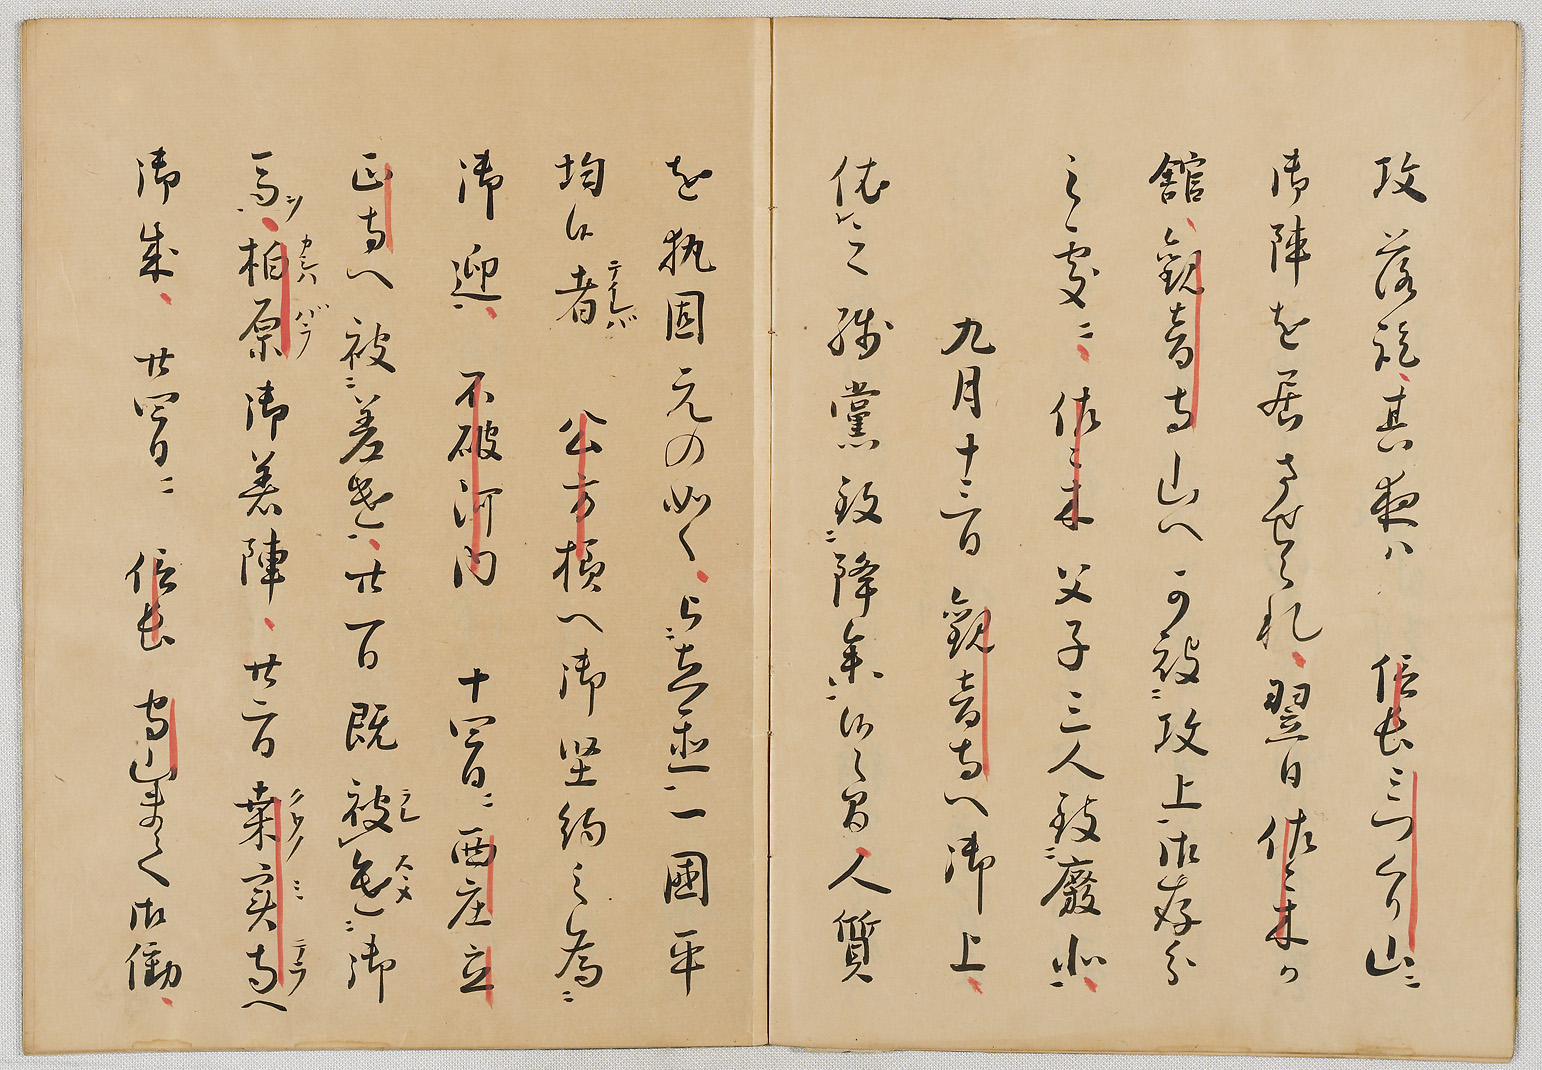 攻落訖、其夜ハ信長ミつくり山ニ
御陣を居させられ、翌日佐々木か
館、観音寺山へ可被攻上御存分
之処ニ、佐々木父子三人致廃北、
九月十三日観音寺へ御上、
依之残党致降参候之間、人質
を執固元の如く、被立置一國平
均候者 公方様へ御堅約之為
御迎、不破河内 十四日ニ西庄立
正寺へ被差遣、廿一日既被進御
馬、柏原御着陣、廿二日桑実寺へ
御成、廿四日ニ信長守山まて御働、